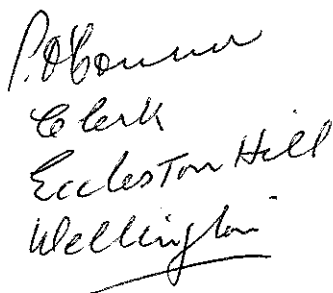 P. O'Connor
Clerk
Eccleston Hill
Wellington